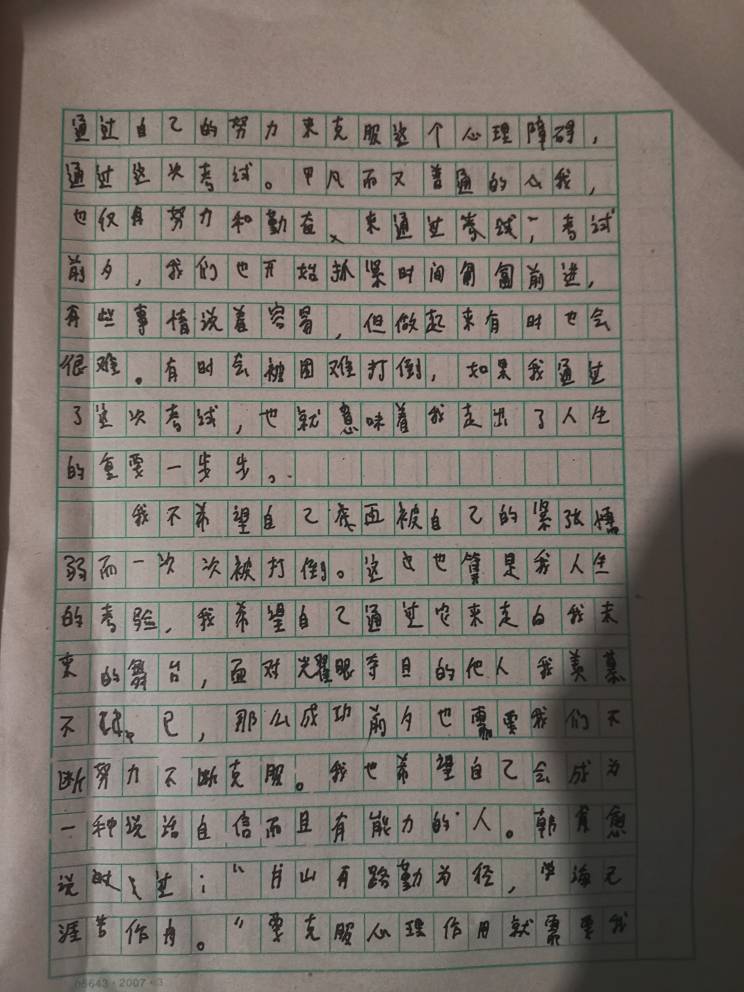 通过自己的努力来克服这个心理障碍，
通过这次考试。平凡而又普通的人我，
也仅有努力和勤奋、来通过考试；考试
前夕，我们也开始抓紧时间匍匐前进，
有些事情说着容易，但做起来有时也会
很难。有时会被困难打倒，如果我通过
了这次考试，也就意味着我走出了人生
的重要一步步。
我不希望自己再被自己的紧张懦
弱而一次次被打倒。这也算是我人生
的考验，我希望自己通过它来走向我未
来的舞台，面对光耀眼夺目的他人我羡慕
不已，那么成功前夕也需要我们不
断努力不断克服。我也希望自己会成为
一种说话自信而且有能力的人。韩愈
说过："书山有路勤为径，学海无
涯苦作舟。"要克服心理作用就需要我
05643·2007·3